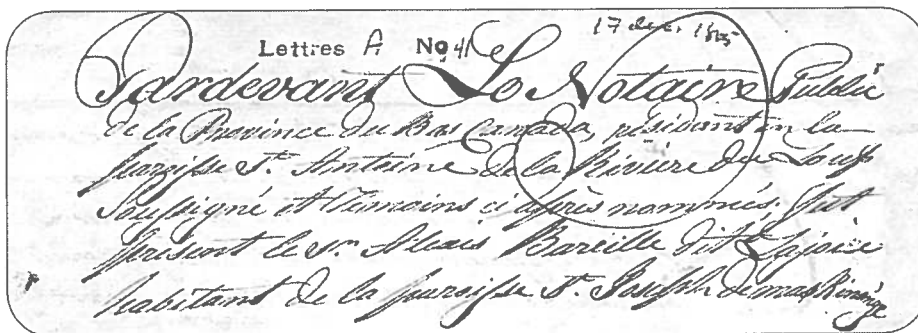 Lettres A No 41 17 dec. 1815
Pardevant Le Notaire Public
de la Province du Bas Canada, résidant en la
paroisse St. Antoine de la Rivière du Loup
Soussigné et Témoins ci après nommés. fut
présent le Sr. Alexis Bareille dit Lajoie
habitant de la paroisse St. Joseph de maskinongé